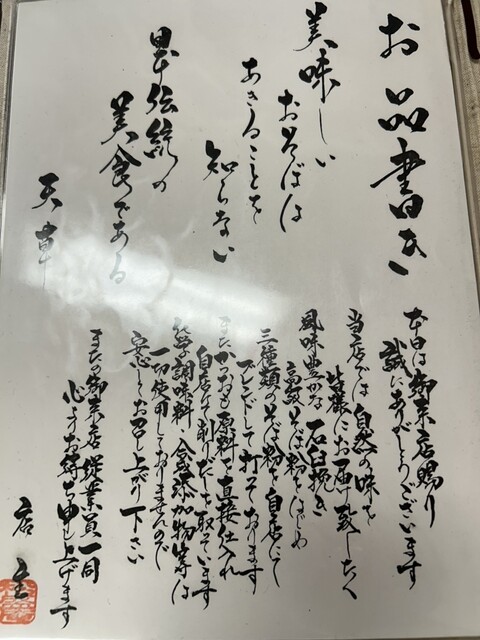 お品書き
美味しい
おそばは
あきることを
知らない
日本伝統の
美食である
天草
本日は御来店賜り
誠にありがとうございます
当店では自然の味を
皆様にお届け致したく
風味豊かな石臼挽き
高級そば粉をはじめ
三種類のそば粉を自店にて
ブレンドして打っております
またかつおも原料を直接仕入れ
自店にて削りだしを取っています
化学調味料 合成添加物等は
一切使用しておりませんので
安心してお召し上がり下さい
またの御来店 従業員一同
心よりお待ち申し上げます
店主